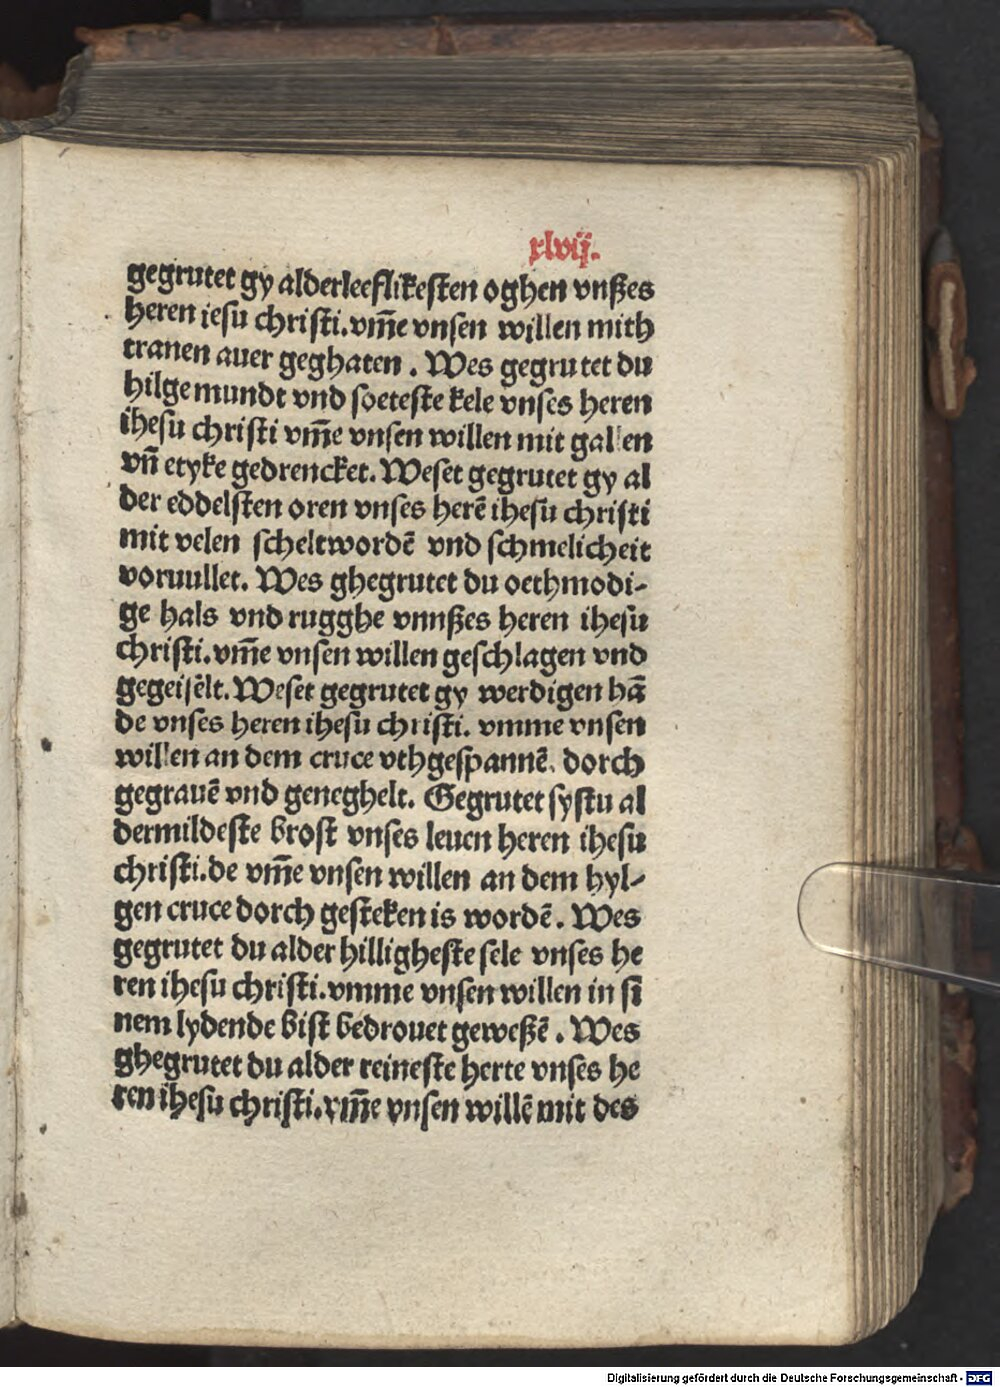 xlvij.
gegrutet gy alderleeflikesten oghen vnßes
heren iesu christi. vm̄e vnsen willen mith
tranen auer geghaten. Wes gegrutet du
hilge mundt vnd soeteste kele vnses heren
ihesu christi vm̄e vnsen willen mit gallen
vn̄ etyke gedrencket. Weset gegrutet gy al
der eddelsten oren vnses herē ihesu christi
mit velen scheltwordē vnd schmelicheit
voruullet. Wes ghegrutet du oethmodi-
ge hals vnd rugghe vnnßes heren ihesu
christi. vm̄e vnsen willen geschlagen vnd
gegeisēlt. Weset gegrutet gy werdigen hā
de vnses heren ihesu christi. vmme vnsen
willen an dem cruce vthgespannē. dorch
gegrauē vnd geneghelt. Gegrutet systu al
dermildeste brost vnses leuen heren ihesu
christi. de vm̄e vnsen willen an dem hyl-
gen cruce dorch gesteken is wordē. Wes
gegrutet du alder hilligheste sele vnses he
ren ihesu christi. vmme vnsen willen in si
nem lydende bist bedrouet geweßē. Wes
ghegrutet du alder reineste herte vnses he
ren ihesu christi. vm̄e vnsen willē mit des
Digitalisierung gefördert durch die Deutsche Forschungsgemeinschaft - DFG